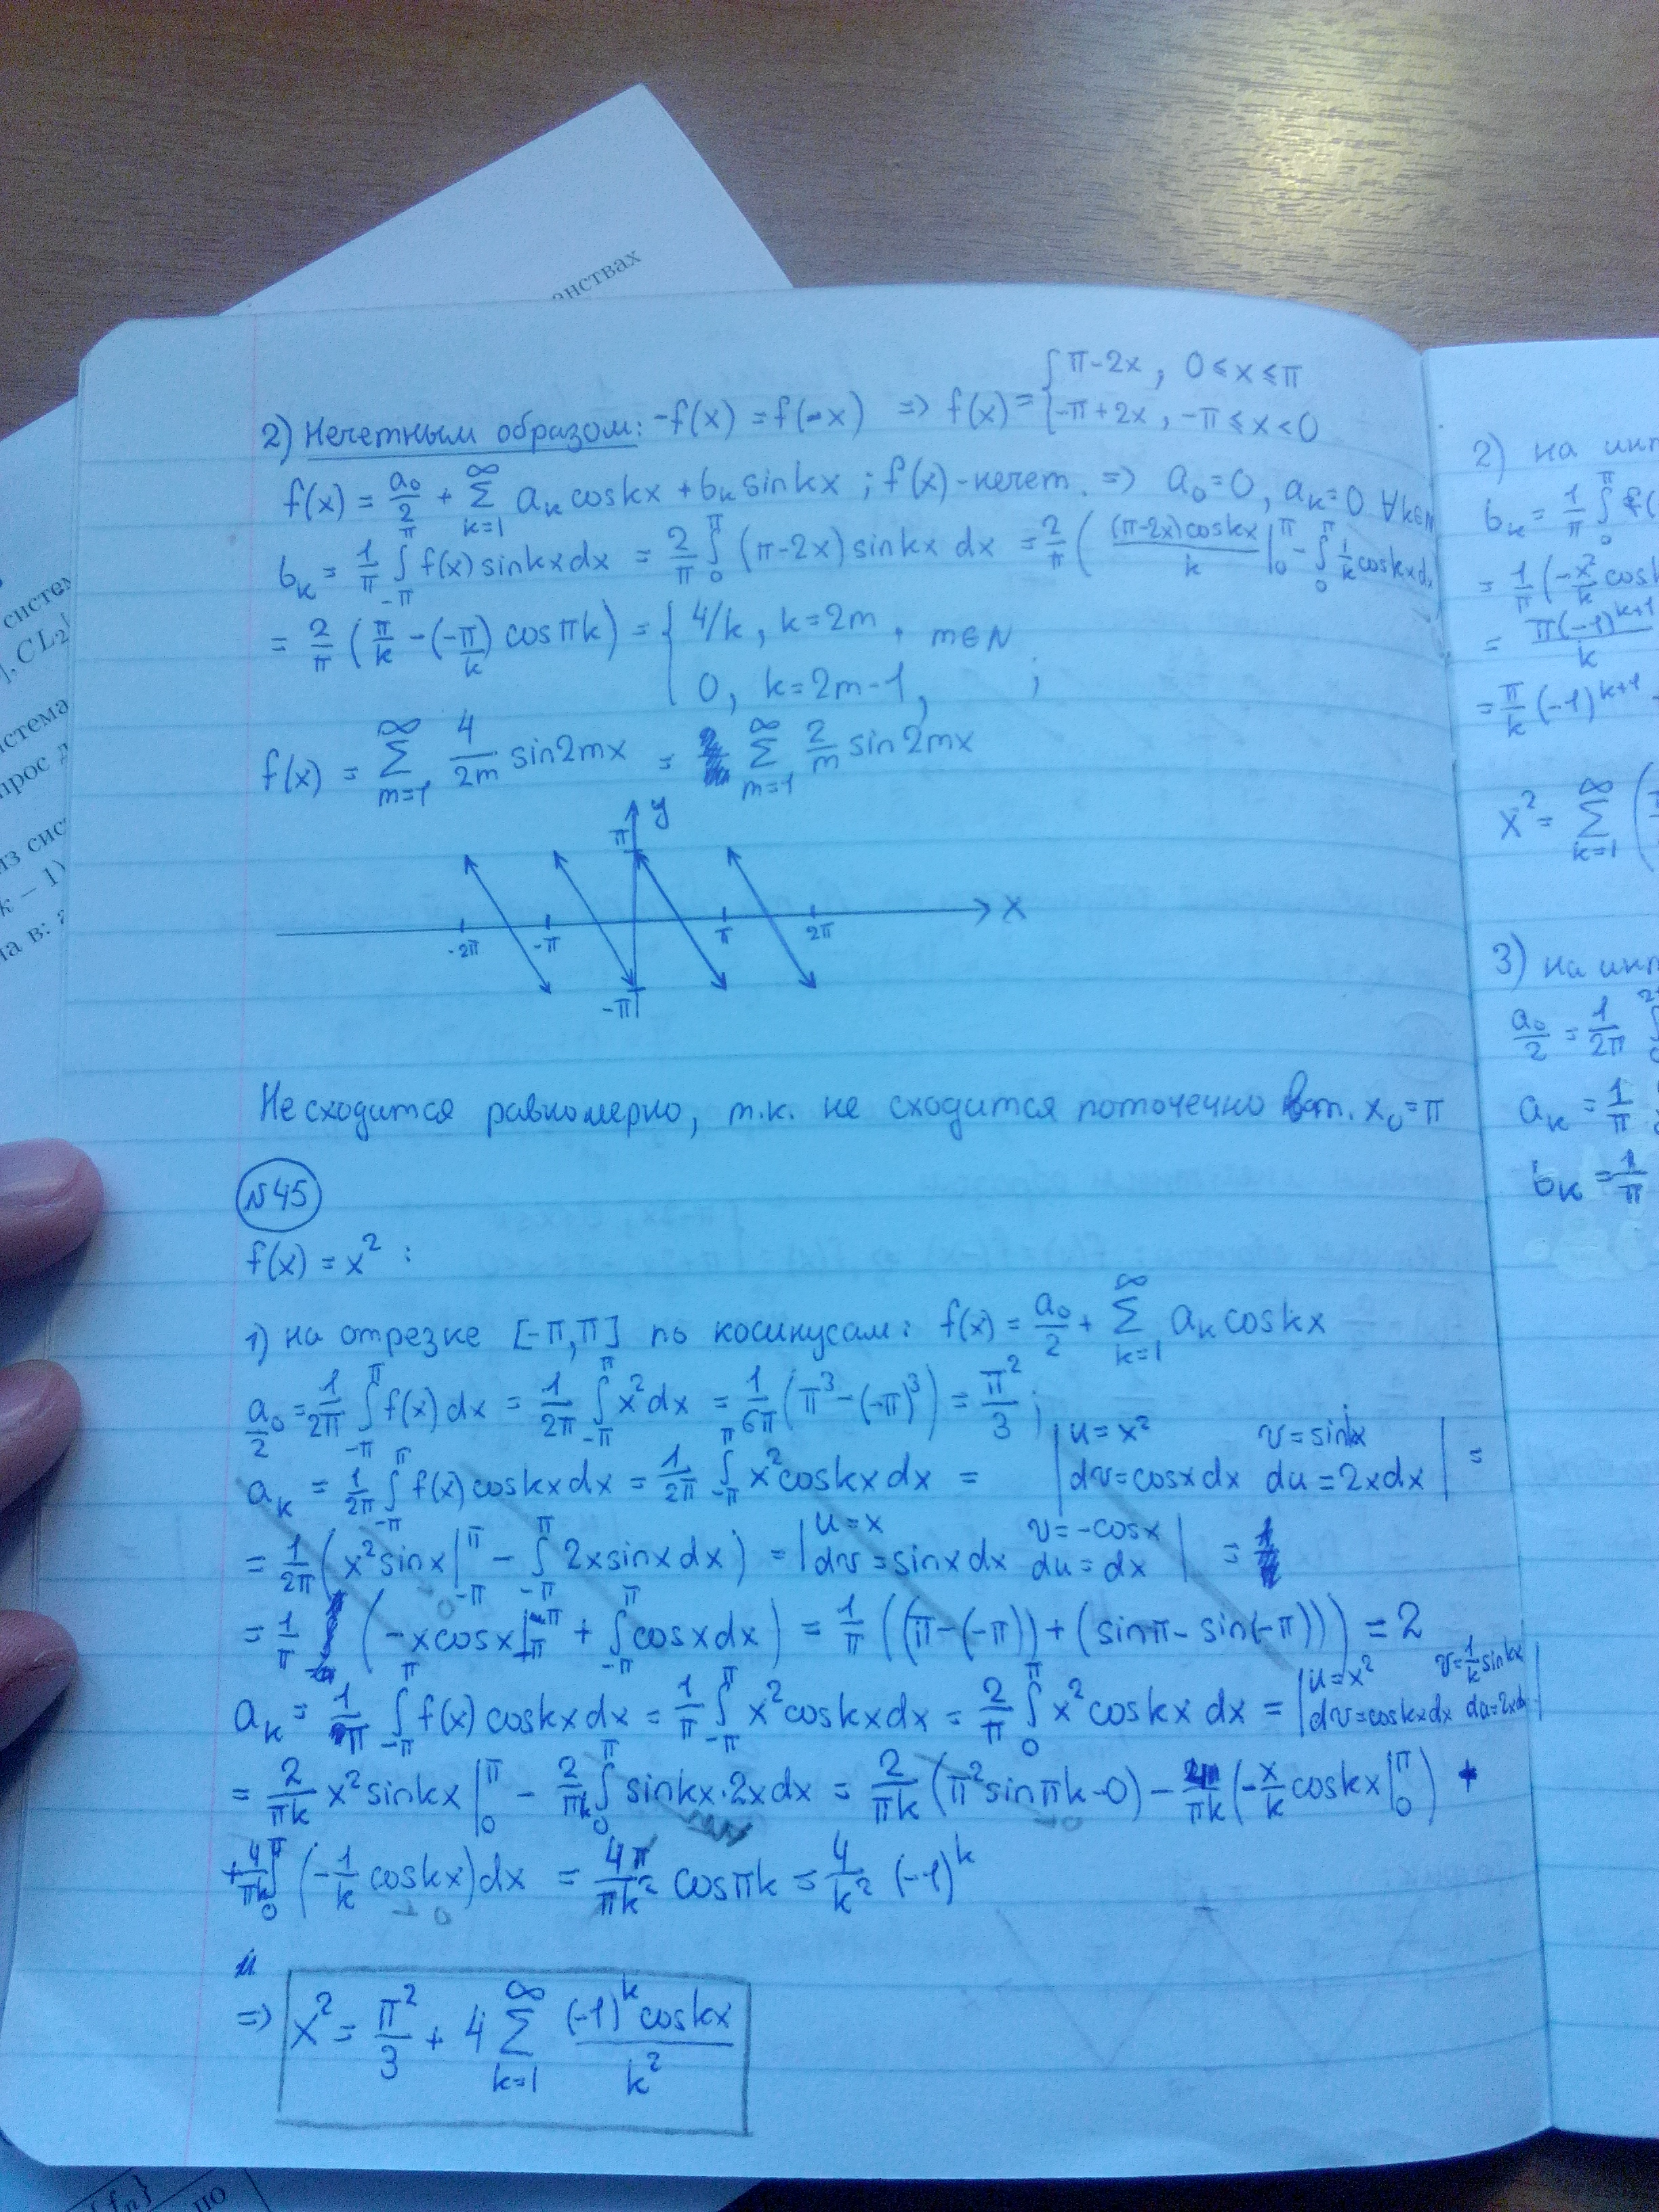 анствах
2) Нечетным образом: -f(x) = f(-x) => f(x) = { π-2x, 0 ≤ x ≤ π
-π+2x, -π ≤ x < 0
f(x) = a₀/2 + ∑_{k=1}^{∞} aₖ coskx + bₖ sinkx ; f(x) - нечет. => a₀=0, aₖ=0 ∀k∈N
bₖ = 1/π ∫_{-π}^{π} f(x) sinkx dx = 2/π ∫_0^π (π-2x) sinkx dx = 2/π ( (π-2x)coskx / k |_0^π - ∫_0^π 1/k coskx d
= 2/π ( π/k - (-π/k) cosπk ) = { 4/k, k=2m, m∈N
0, k=2m-1, ;
f(x) = ∑_{m=1}^{∞} 4/2m sin2mx = ∑_{m=1}^{∞} 2/m sin2mx
y
π
x
-2π -π π 2π
-π
Не сходится равномерно, т.к. не сходится поточечно в т. x₀=π
N45
f(x) = x² :
1) на отрезке [-π,π] по косинусам: f(x) = a₀/2 + ∑_{k=1}^{∞} aₖ coskx
a₀/2 = 1/2π ∫_{-π}^{π} f(x) dx = 1/2π ∫_{-π}^{π} x² dx = 1/6π (π³ - (-π)³) = π²/3 ;
aₖ = 1/2π ∫_{-π}^{π} f(x) coskx dx = 1/2π ∫_{-π}^{π} x² coskx dx = | u = x² v = sinx dv = cosx dx du = 2x dx | =
= 1/2π ( x² sinx |_{-π}^{π} - ∫_{-π}^{π} 2x sinx dx ) = | u = x v = -cosx dv = sinx dx du = dx | =
= 1/π ( -x cosx |_{π}^{-π} + ∫_{-π}^{π} cosx dx ) = 1/π ((π-(-π)) + (sinπ - sin(-π))) = 2
aₖ = 1/π ∫_{-π}^{π} f(x) coskx dx = 1/π ∫_{-π}^{π} x² coskx dx = 2/π ∫_0^π x² coskx dx = | u = x² v = 1/k sinkx dv = coskx dx du = 2x d |
= 2/πk x² sinkx |_0^π - 2/πk ∫_0^π sinkx · 2x dx = 2/πk (π² sinπk - 0) - 4/πk (-x/k coskx |_0^π) +
+ 4/πk ∫_0^π (-1/k coskx) dx = 4π/πk² cosπk = 4/k² (-1)^k
=> x² = π²/3 + 4 ∑_{k=1}^{∞} (-1)^k coskx / k²
2) на инт
bₖ = 1/π ∫_0^π f(
= 1/π (-x²/k cos
= π(-1)^{k+1} / k
= π/k (-1)^{k+1}
x² = ∑_{k=1}^{∞} (
3) на инт
a₀/2 = 1/2π
aₖ = 1/π
bₖ = 1/π
систем
], CL₂[
истема
прос д
из сис
k − 1)
на в:
по